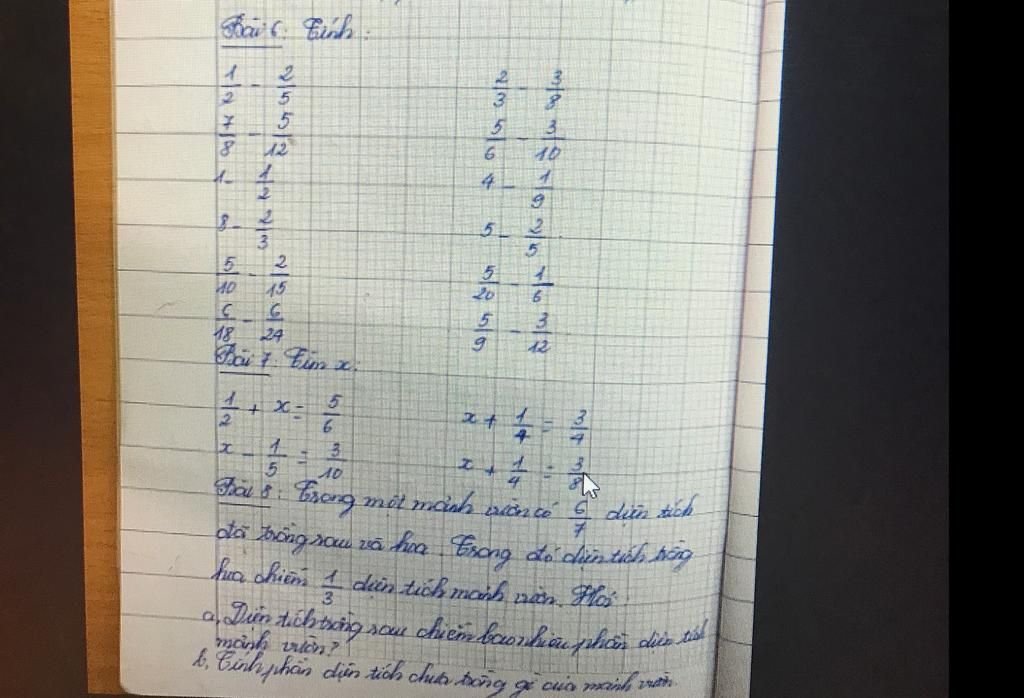 Bài 6: Tính:
1/2 - 2/5    2/3 - 3/8
7/8 - 5/12    5/6 - 3/10
1 - 1/2    4 - 1/9
8 - 2/3    5 - 2/5
5/10 - 2/15    5/20 - 1/6
6/18 - 6/24    5/9 - 3/12
Bài 7: Tìm x:
1/2 + x = 5/6    x + 1/4 = 3/4
x - 1/5 = 3/10    x + 1/4 = 3/8
Bài 8: Trong một mảnh vườn có 6/7 diện tích
đã trồng rau và hoa. Trong đó diện tích trồng
hoa chiếm 1/3 diện tích mảnh vườn. Hỏi:
a, Diện tích trồng rau chiếm bao nhiêu phần diện tích
mảnh vườn?
b, Tính phần diện tích chưa trồng gì của mảnh vườn.